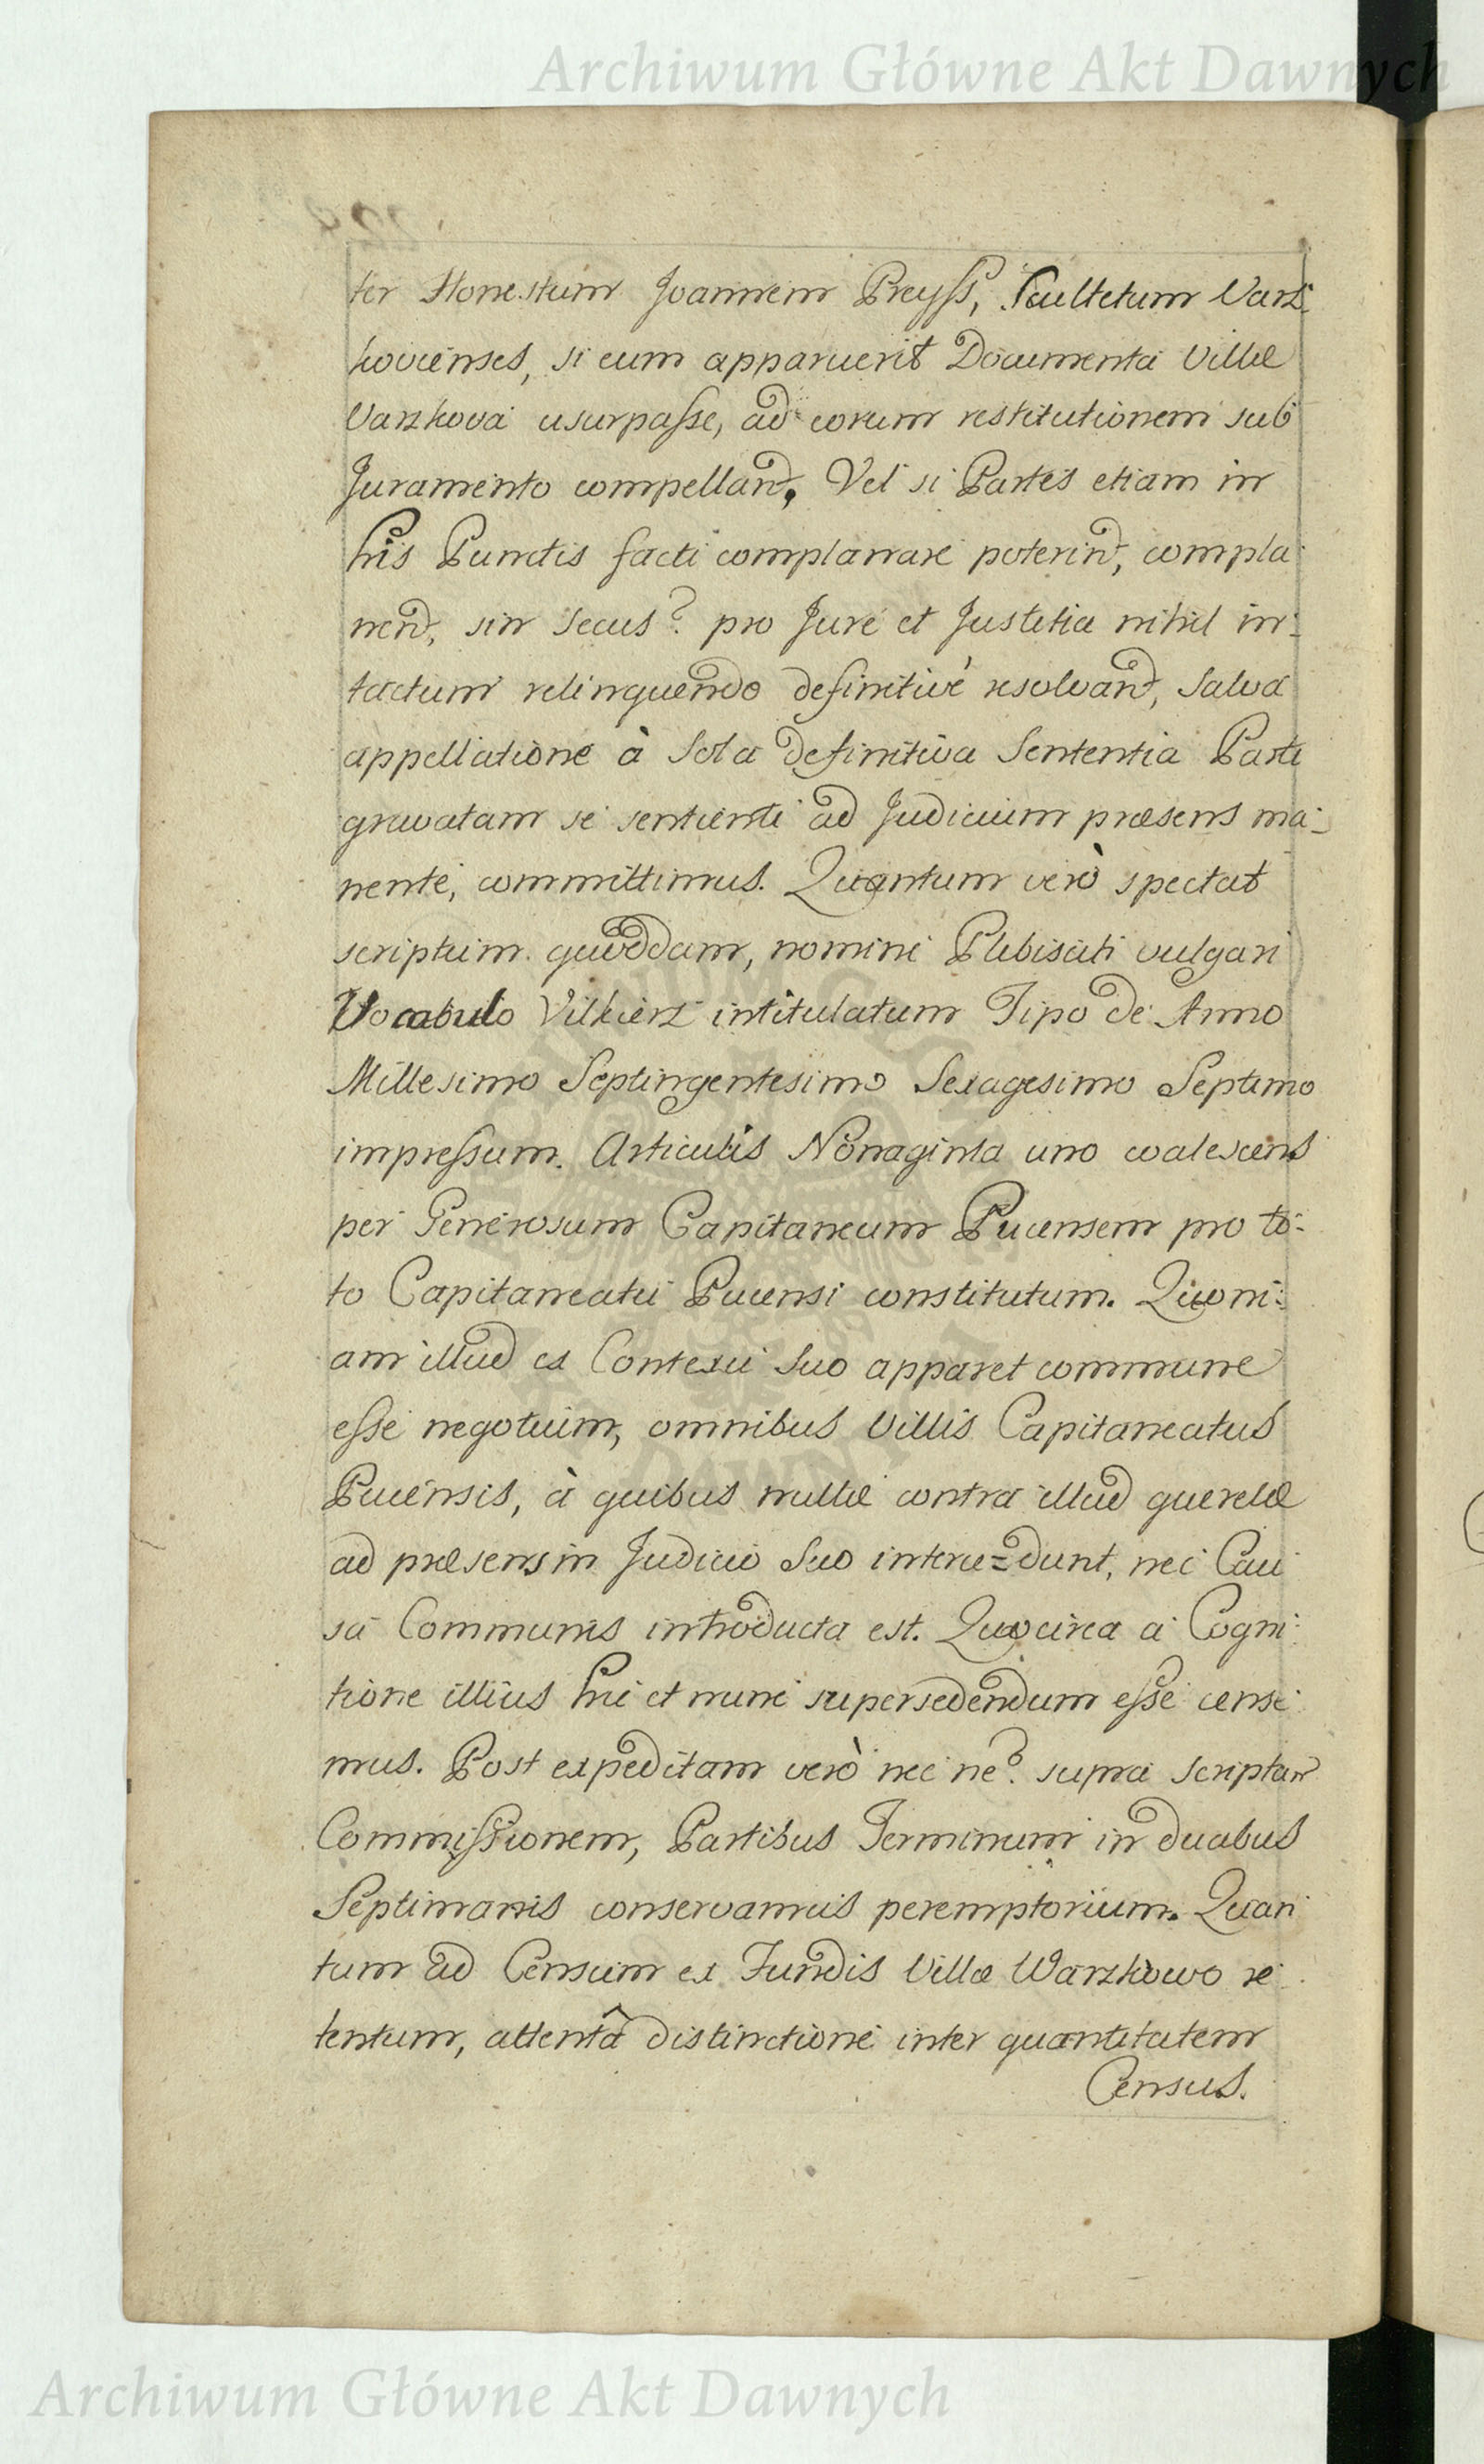 Archiwum Główne Akt Dawnych
ter Honestum Joannem Preyss, Scultetum Varz-
koviensés, si eum apparuerit Documenta Villæ
Varzkova usurpasse, ad eorum restitutionem sub
Juramento compelland, Vel si Partes etiam in
his Punctis facti complanare poterind, compla
nend, sin secus? pro Jure et Justitia nihil in-
tactum relinquendo definitivè resolvand, salva
appellatione à sola definitiva Sententia Parti
gravatam se sentienti ad Judicium præsens ma-
nente, committimus. Quantum verò spectat
scriptum quoddam, nomine Plebisciti vulgari
Vocabulo Vilkierz intitulatum Tipo de Anno
Millesimo Septingentesimo Sexagesimo Septimo
impressum. Articulis Nonaginta uno coalescens
per Generosum Capitaneum Pucensem pro to-
to Capitaneatu Pucensi constitutum. Quoni-
am illud ex Contextu suo apparet commune
esse negotium, omnibus Villis Capitaneatus
Pucensis, à quibus nullæ contra illud querelæ
ad præsens in Judicio suo interce=dunt, nec Cau
sa Communis introducta est. Quocirca a Cogni
tione illius hic et nunc supersedendum esse cense
mus. Post expeditam verò nec ne? supra scriptam
Commissionem, Partibus Terminum in duabus
Septimanis conservamus peremptorium. Quan
tum ad Censum ex Fundis Villæ Warzkowo re
tentum, attentâ distinctione inter quantitatem
Census.
Archiwum Główne Akt Dawnych